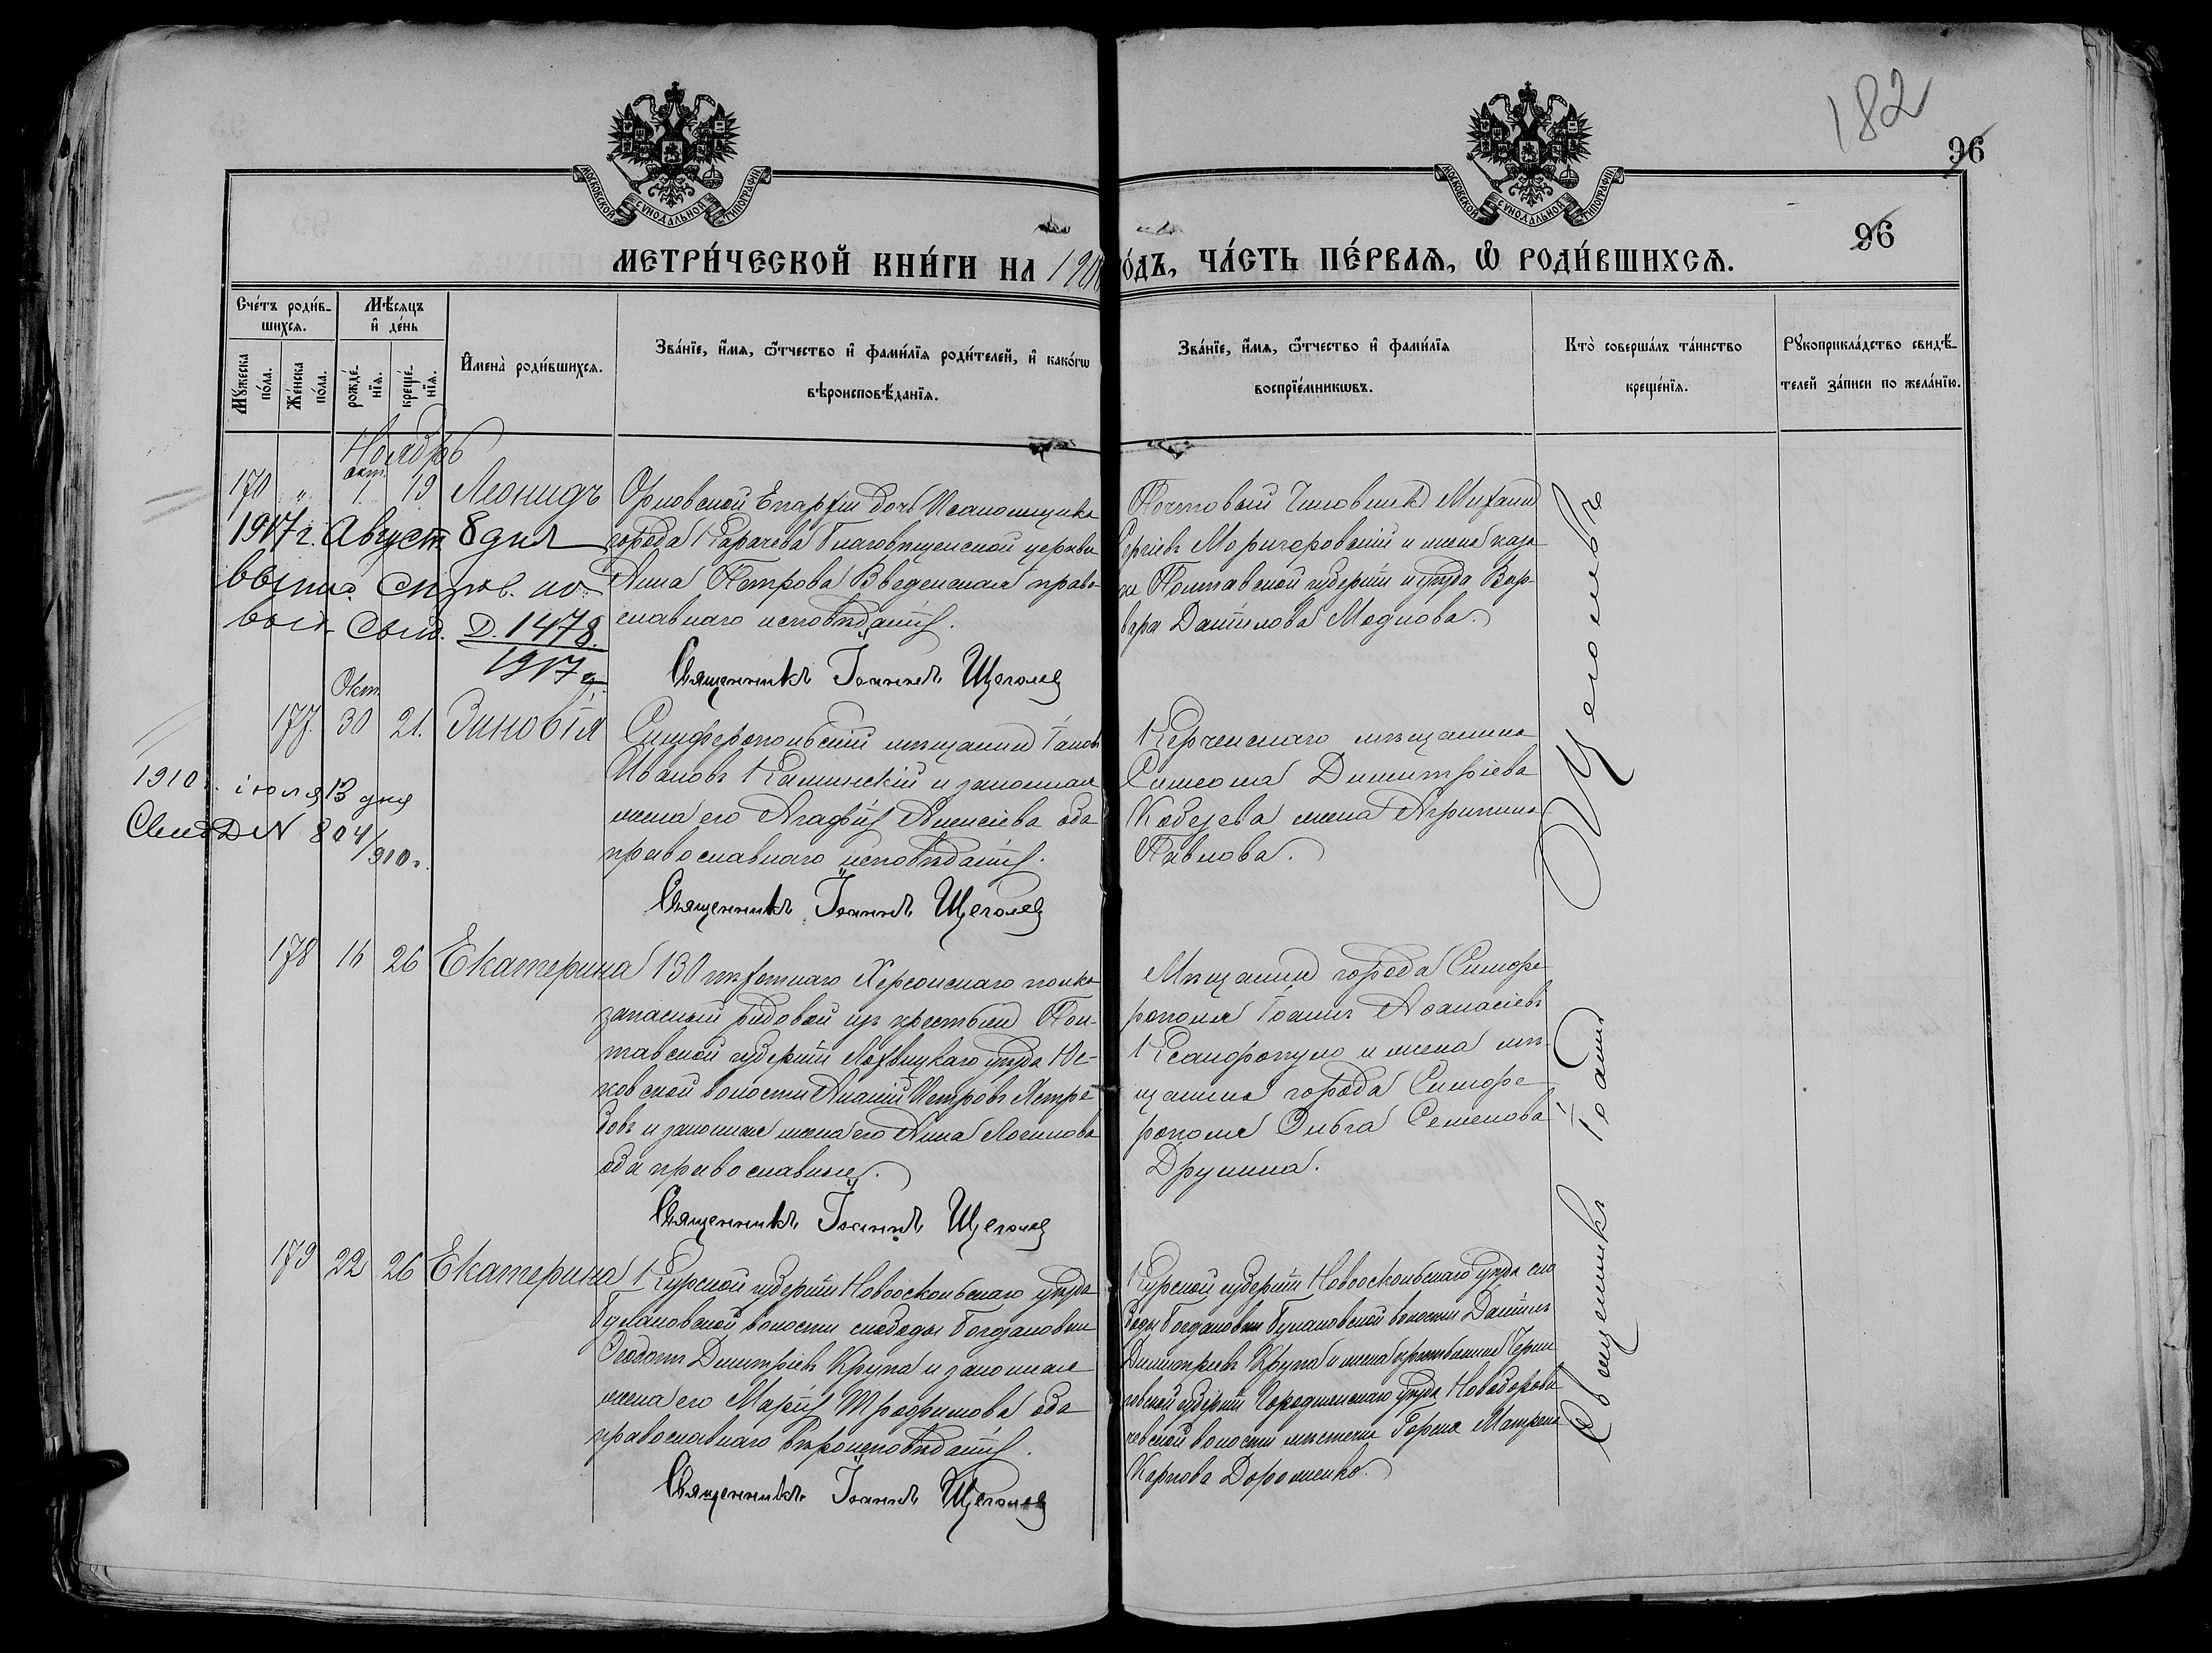 182
96
МОСКОВСКОЙ СѴНОДАЛЬНОЙ ТИПОГРАФІИ
МОСКОВСКОЙ СѴНОДАЛЬНОЙ ТИПОГРАФІИ
96
МЕТРИ́ЧЕСКОЙ КНИ́ГИ НА 190
О́ДЪ, ЧА́СТЬ ПЕ́РВАѦ, Ѡ҆ РОДИ́ВШИХСѦ.
Сче́тъ роди́в-
шихсѧ.
Мѣ́сѧцъ
и҆ де́нь
Мꙋ́жеска по́ла.
Же́нска по́ла.
рожде́-нїѧ.
креще́-нїѧ.
И҆мена̀ роди́вшихсѧ.
Зва́нїе, и҆́мѧ, ѻ҆́тчество и҆ фами́лїѧ роди́телей, и҆ како́гѡ
вѣроисповѣ́данїѧ.
Зва́нїе, и҆́мѧ, ѻ҆́тчество и҆ фами́лїѧ
воспрїе́мникѡвъ.
Кто̀ соверша́лъ та́инство
креще́нїѧ.
Рꙋкоприкла́дство свидѣ́-
телей за́писи по жела́нїю.
Ноябрь
170 " окт. 1 19 Леонидъ
Орловской Епархіи дочь Псаломщика
города Карачева Благовѣщенской церкви
Анна Петрова Введенская право-
славнаго исповѣданія.
Священникъ Іоаннъ Щеголев
Почтовый Чиновникъ Михаилъ
Сергіевъ и жена каза
ка Полтавской губерніи и уѣзда Вар-
вара Даніилова Моднова.
1917 г. Август. 8 дня
Д. 1478
1917 г.
177. Окт. 30 21. Зиновія
Симферопольскій мѣщанинъ
Ивановъ Каминскій и законная
жена его Агафія Алексіева оба
православнаго исповѣданія.
Священникъ Іоаннъ Щеголев
Керченскаго мѣщанина
Симеона Димитріева
жена Агрипина
Павлова.
1910 г. іюля 13 дня
№ 804/910 г.
178 16 26 Екатерина
130 пѣхотнаго Херсонскаго полка
запасный рядовой изъ крестьянъ Пол-
тавской губерніи Лохвицкаго уѣзда
волости Ананій Петровъ Ястре-
бовъ и законная жена его Анна Логинова
оба православные.
Священникъ Іоаннъ Щеголев
Мѣщанинъ города Симфе
рополя Іоаннъ Аѳанасіевъ
Ксандропуло и жена мѣ-
щанина города Симфе
рополя Ольга Семенова
Друнина.
179 22 26 Екатерина
Курской губерніи Новооскольскаго уѣзда
Булановской волости слободы Богдановки
Ѳеодотъ Димитріевъ Крупа и законная
жена его Марія Трофимова оба
православнаго вѣроисповѣданія.
Священникъ Іоаннъ Щеголев
Курской губерніи Новооскольскаго уѣзда сло
боды Богдановки Булановской волости Даніилъ
Димитріевъ Крупа и жена крестьянина Черни
говской губерніи Городнянскаго уѣзда
волости мѣстечка Матрена
Карпова Дорошенко.
Священникъ Іоаннъ Щеголевъ